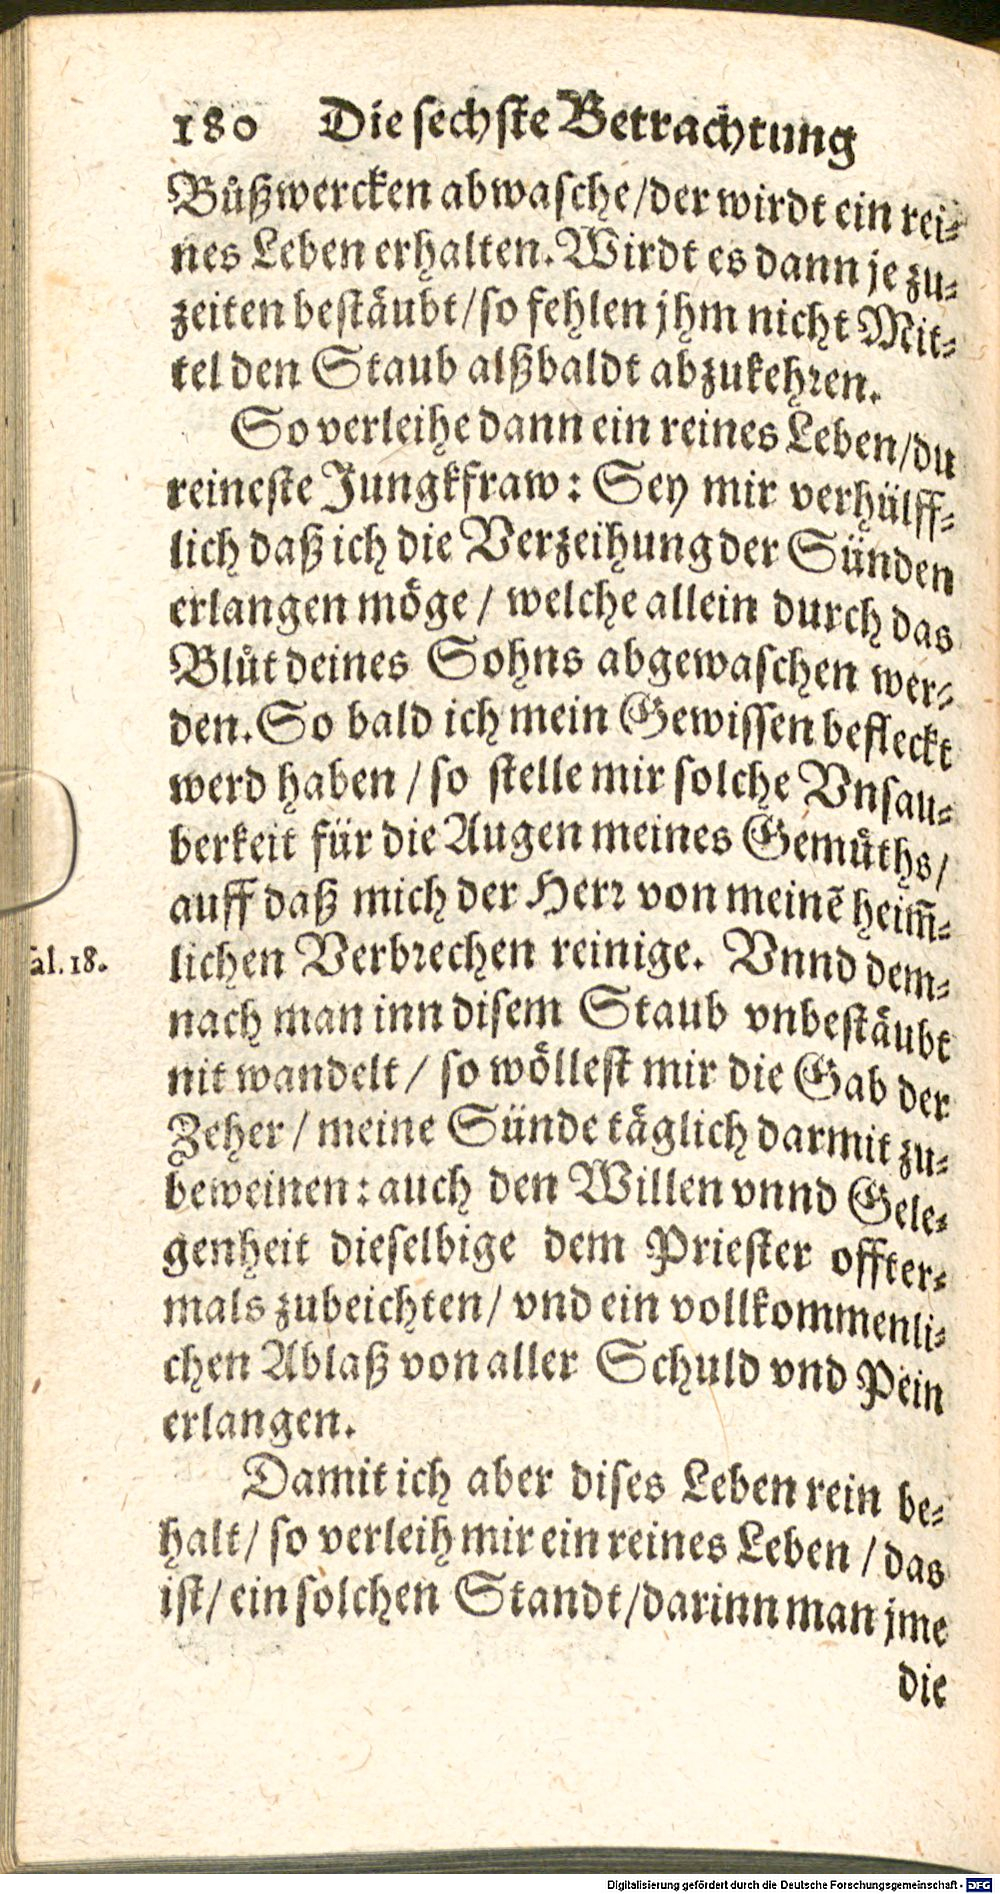 180 Die sechste Betrachtung
Bůßwercken abwasche/der wirdt ein rei-
nes Leben erhalten. Wirdt es dann je zu-
zeiten bestäubt/so fehlen jhm nicht Mit-
tel den Staub alßbaldt abzukehren.
So verleihe dann ein reines Leben/du
reineste Jungkfraw: Sey mir verhülff-
lich daß ich die Verzeihung der Sünden
erlangen möge/ welche allein durch das
Blůt deines Sohns abgewaschen wer-
den. So bald ich mein Gewissen befleckt
werd haben/so stelle mir solche Vnsau-
berkeit für die Augen meines Gemůths/
auff daß mich der Herr von meinẽ heim̃-
al. 18. lichen Verbrechen reinige. Vnnd dem-
nach man inn disem Staub vnbestäubt
nit wandelt/ so wöllest mir die Gab der
Zeher/ meine Sünde täglich darmit zu-
beweinen: auch den Willen vnnd Gele-
genheit dieselbige dem Priester offter-
mals zubeichten/ vnd ein vollkommenli-
chen Ablaß von aller Schuld vnd Pein
erlangen.
Damit ich aber dises Leben rein be-
halt/ so verleih mir ein reines Leben/das
ist/ ein solchen Standt/darinn man jme
die
Digitalisierung gefördert durch die Deutsche Forschungsgemeinschaft - DFG